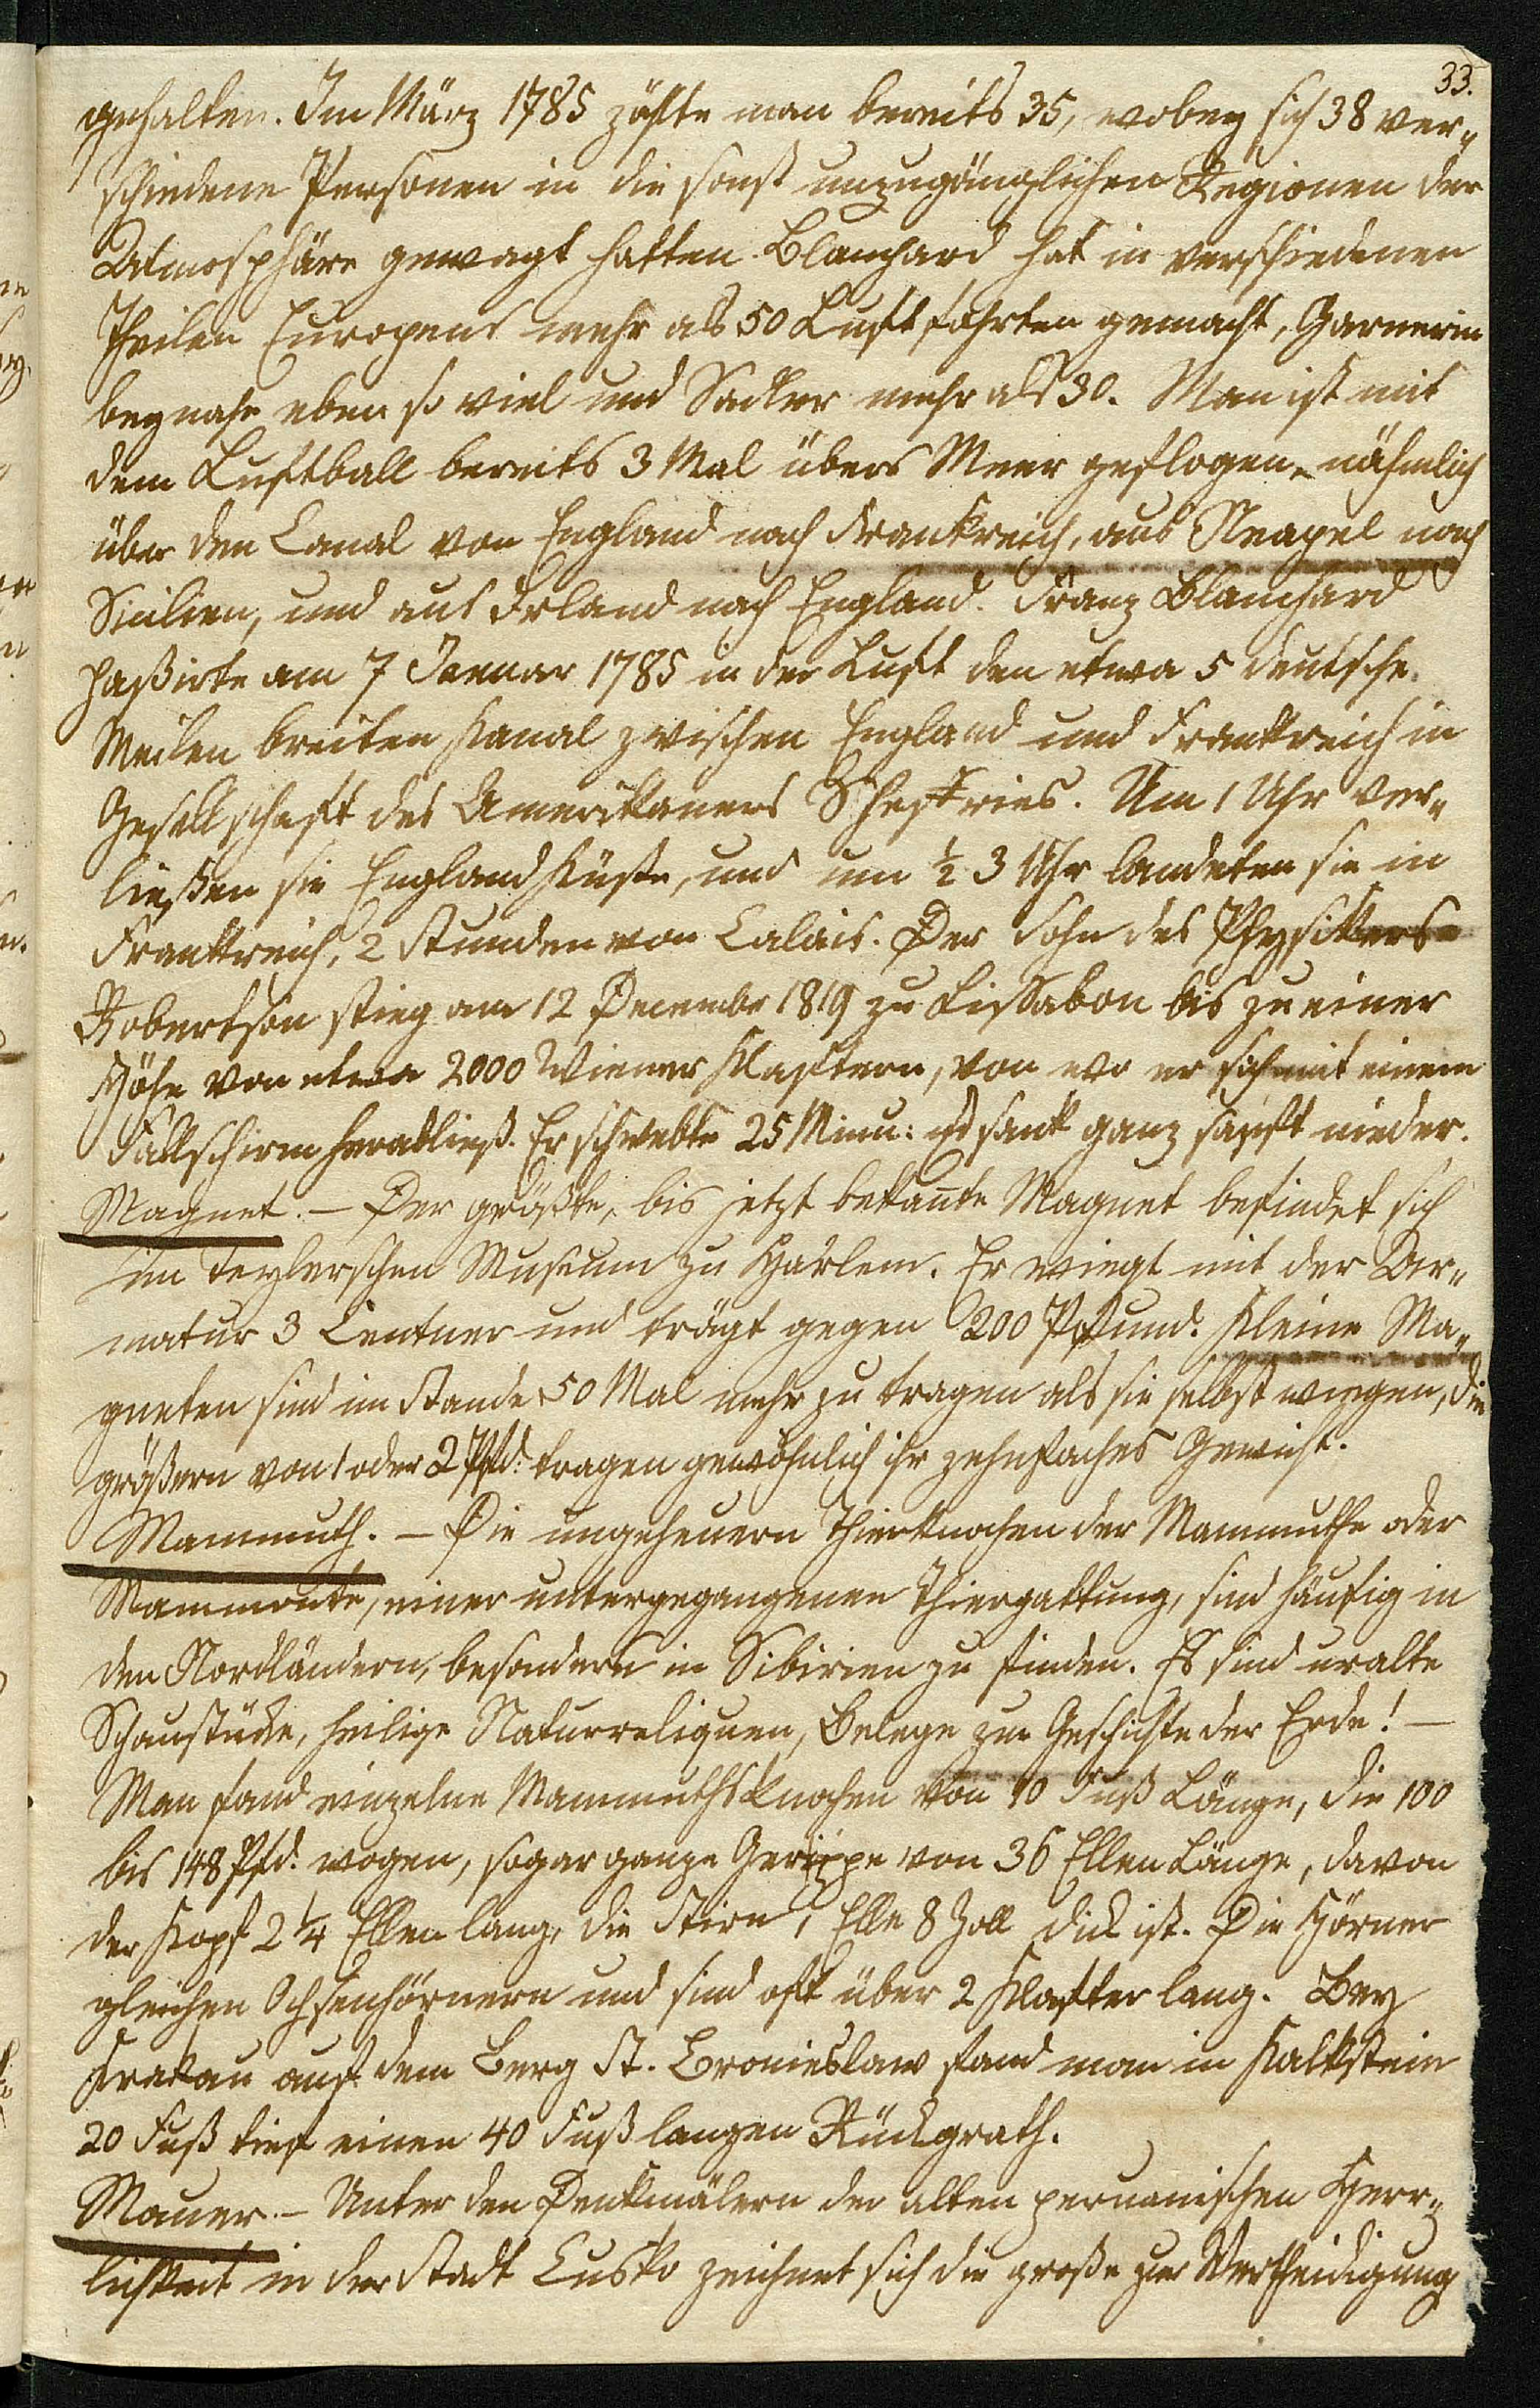 33.
gehalten. Im März 1785 zählte man bereits 35, wobey sich 38 ver„
schiedene Personen in die sonst unzugänglichen Regionen der
Atmosphäre gewagt hatten. Blanchard hat in verschiedenen
Theilen Europens mehr als 50 Luftfahrten gemacht, Garnerin
beynahe eben so viel und Sadler mehr als 30. Man ist mit
dem Luftball bereits 3 Mal übers Meer geflogen, nähmlich
über den Canal von England nach Frankreich, aus Neapel nach
Sicilien, und aus Irland nach England. Franz Blanchard
paßirte am 7 Januar 1785 in der Luft den etwa 5 deutsche
Meilen breiten Kanal zwischen England und Frankreich in
Gesellschaft des Amerikaners Scheffries. Um 1 Uhr ver„
ließen sie England Küste, und um ½ 3 Uhr landeten sie in
Frankreich, 2 Stunden von Calais. Der Sohn des Physikers
Robertson stieg am 12 Decembr 1819 zu Lissabon bis zu einer
Höhe von etwa 2000 Wiener Klaftern, von wo er sich mit einem
Fallschirm herabließ. Er schwebte 25 Minu: und sank ganz sanft nieder.
Magnet. — Der größte, bis jetzt bekan̄te Magnet befindet sich
im Teylerschen Museum zu Harlem. Er wiegt mit der Ar„
matur 3 Centner und trägt gegen 200 Pfund. Kleine Ma„
gneten sind im Stande 50 Mal mehr zu tragen als sie selbst wiegen, die
größern von 1 oder 2 Pfd: tragen gewöhnlich ihr zehnfaches Gewicht.
Mammuth. — Die ungeheuern Thierknochen der Mammuthe oder
Mammonte, einer untergegangenen Thiergattung, sind häufig in
den Nordländern, besonders in Sibirien zu finden. Es sind uralte
Schaustücke, heilige Naturreliquen, Belege zur Geschichte der Erde! —
Man fand einzelne Mammuthsknochen von 10 Fuß Länge, die 100
bis 148 Pfd. wogen, sogar ganze Gerippe von 36 Ellen Länge, davon
der Kopf 2 ¼ Ellen lang, die Stirn 1 Elle 8 Zoll dick ist. Die Hörner
gleichen Ochsenhörnern und sind oft über 2 Klafter lang. Bey
Krakau auf dem Berg St. Bronieslaw fand man in Kalkstein
20 Fuß tief einen 40 Fuß langen Rückgrath.
Mauer. — Unter den Denkmälern der alten peruanischen Herr„
lichkeit in der Stadt Cusko zeichnet sich die große zur Vertheidigung